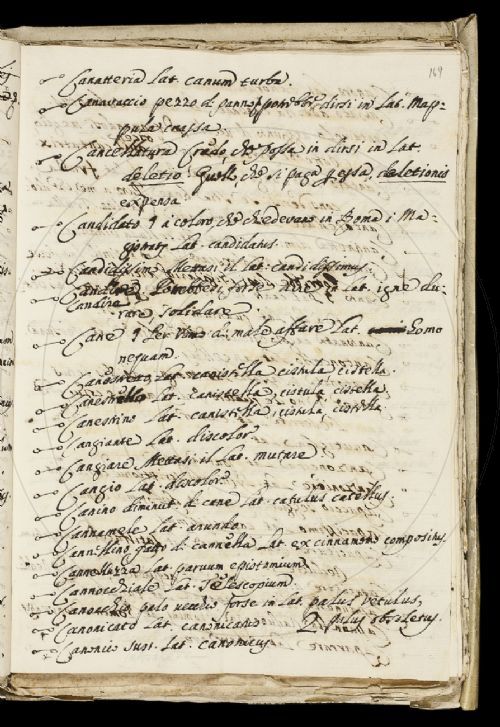 169
Canatteria Lat. canum turba.
Canavaccio pezzo di panno potrebbe dirsi in Lat. Map-
pula crassa
Cancellatura Credo che possa in dirsi in Lat.
deletio. Quello che si paga p essa, deletionis
expensa
Candidato q a coloro che chiedevano in Roma i Ma-
Lat. candidatus
Candidissimo Mettasi il Lat. candidissimus
Candire forse in Lat. igne du-
rare, solidare
Cane q Per Uomo di mal affare Lat. homo
nequam.
Lat. canistella cistula cistella.
Canestrello Lat. canistella, cistula cistella
Canestrino Lat. canistella, cistula, cistella
Cangiante Lat. discolor
Cangiare Mettasi il Lat. mutare
Cangio Lat. discolor
Canino diminut. di cane Lat. catulus catellus.
Cannamele Lat. arundo
di cannella Lat. ex cinnamomo compositus.
Lat. parvum epistomium
Cannocchiale Lat. Telescopium.
Canocchio palo vecchio forse in Lat. palus vetulus,
Canonicato Lat. canonicatus palus obsoletus.
Canonico sust. Lat. canonicus